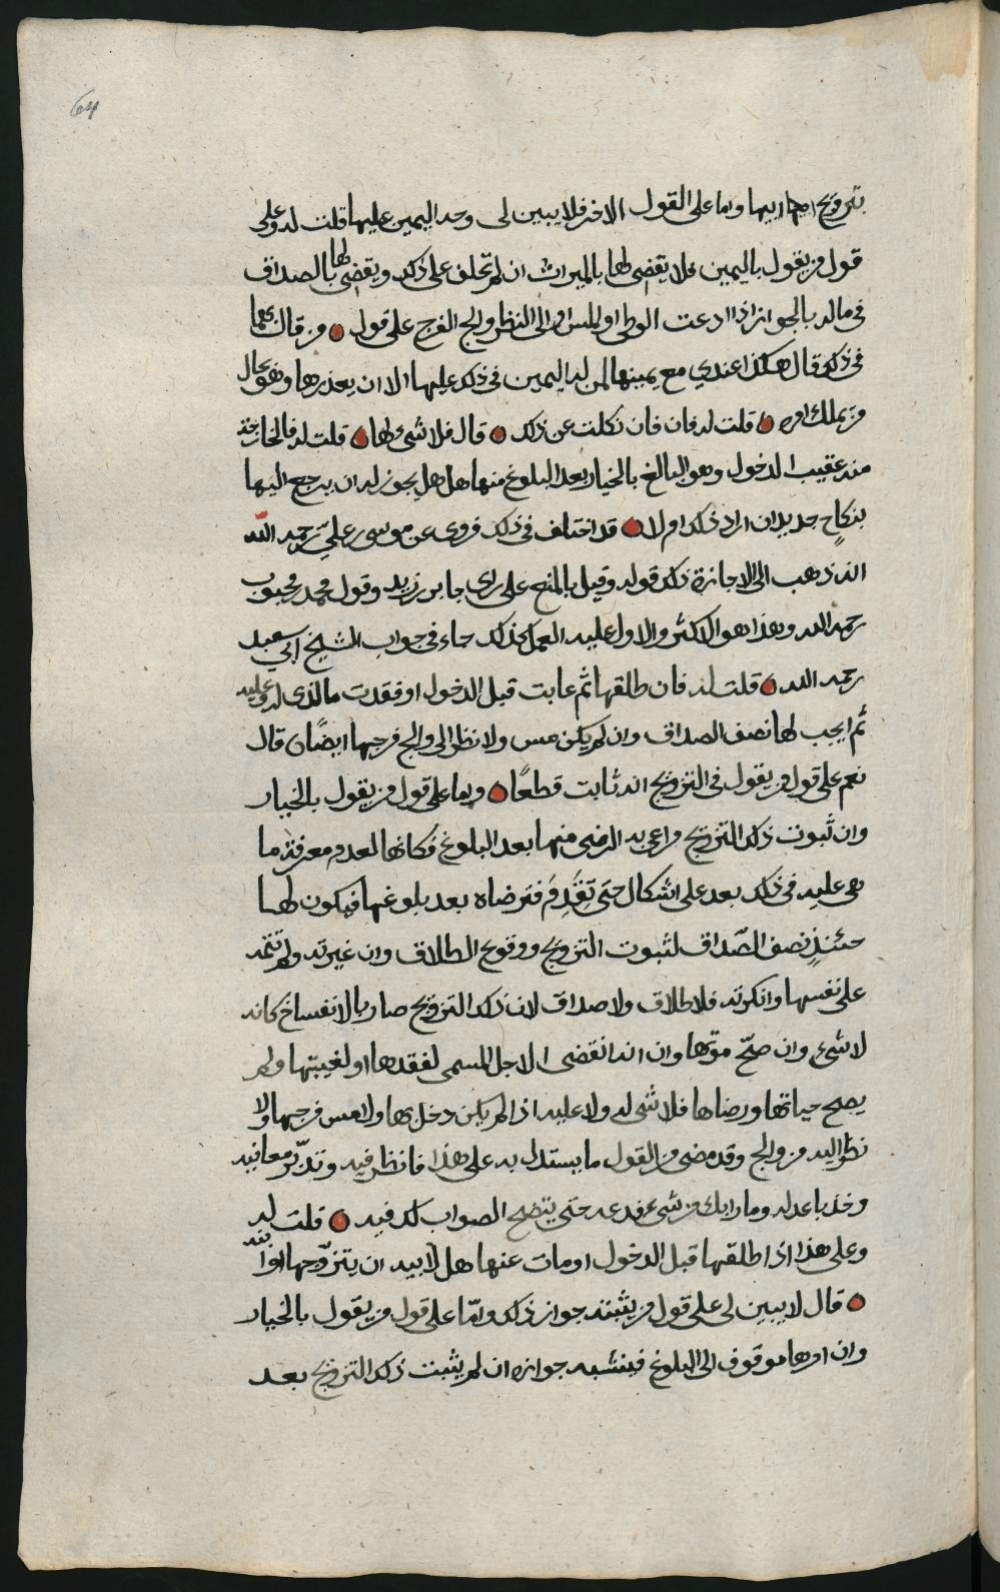 64
بتزويج ابيها وما على القول الاخر فلا يبين لى وجد اليمين عليها قلت له وعلى
قول من يقول باليمين فلا يقضى لها بالميراث ان لم تحلف على ذلك ويقضى لها بالصداق
فى ماله بالجواز اذا ادعت الوطى او المس او الى النظر والج الفرج على قول من قال بهما
فى ذلك قال هكذا عندي مع يمينها لمن له اليمين فى ذلك عليها الا ان يعذرها وهو بحال
من يملك امره قلت له فان نكلت عن ذلك قال فلا شىء لها قلت له فالخارجة
منه عقيب الدخول وهو البالغ بالخيار بعد البلوغ منها هل هل يجوز له ان يرجع اليها
بنكاح جديد ان اراد ذلك ام لا قد اختلف فى ذلك فروى عن موسى بن علي رحمه الله
انه ذهب الى الاجازة ذلك قوله وقيل بالمنع على راى جابر بن زيد وقول محمد بن محبوب
رحمه الله وهذا هو الاكثر والاول عليه العمل كذلك جاء فى جواب الشيخ ابي سعيد
رحمه الله قلت له فان طلقها ثم غابت قبل الدخول او فقدت ما الذى له وعليه
ثم ايجب لها نصف الصداق وان لم يكن مس ولا نظر الى والج فرجها ايضًا قال
نعم على قول من يقول فى التزويج انه ثابت قطعًا وما على قول من يقول بالخيار
وان ثبوت ذلك التزويج مراعى به الرضى منها بعد البلوغ فكانها لعدم معرفة ما
هى عليه فى ذلك بعد على اشكال حتى تقدم فترضاه بعد بلوغها فيكون لها
حينئذٍ نصف الصّداق لثبوت التزويج ووقوع الطلاق وان غيرته ولم تتمه
على نفسها وانكرته فلا طلاق ولا صداق لان ذلك التزويج صار بالانفساخ كانه
لا شىء وان صحّ موتها وان انقضى الاجل المسمى لفقدها او لغيبتها ولم
يصح حياتها ورضاها فلا شى له ولا عليه اذا لم يكن دخل بها ولا مس فرجها ولا
نظر اليه من والج وقد مضى من القول ما يستدل به على هذا فانظر فيه وتدبّر معانيه
وخذ باعدله وما رابك من شىء فدعه حتى يتضح الصواب لك فيه قلت له
وعلى هذا اذا طلقها قبل الدخول او مات عنها هل لابيه ان يتزوّجها او ابنه
قال لا يبين لى على قول من يثبته جواز ذلك وامّا على قول من يقول بالخيار
وان امرها موقوف الى البلوغ فيشبه جوازه ان لم يثبت ذلك التزويج بعد